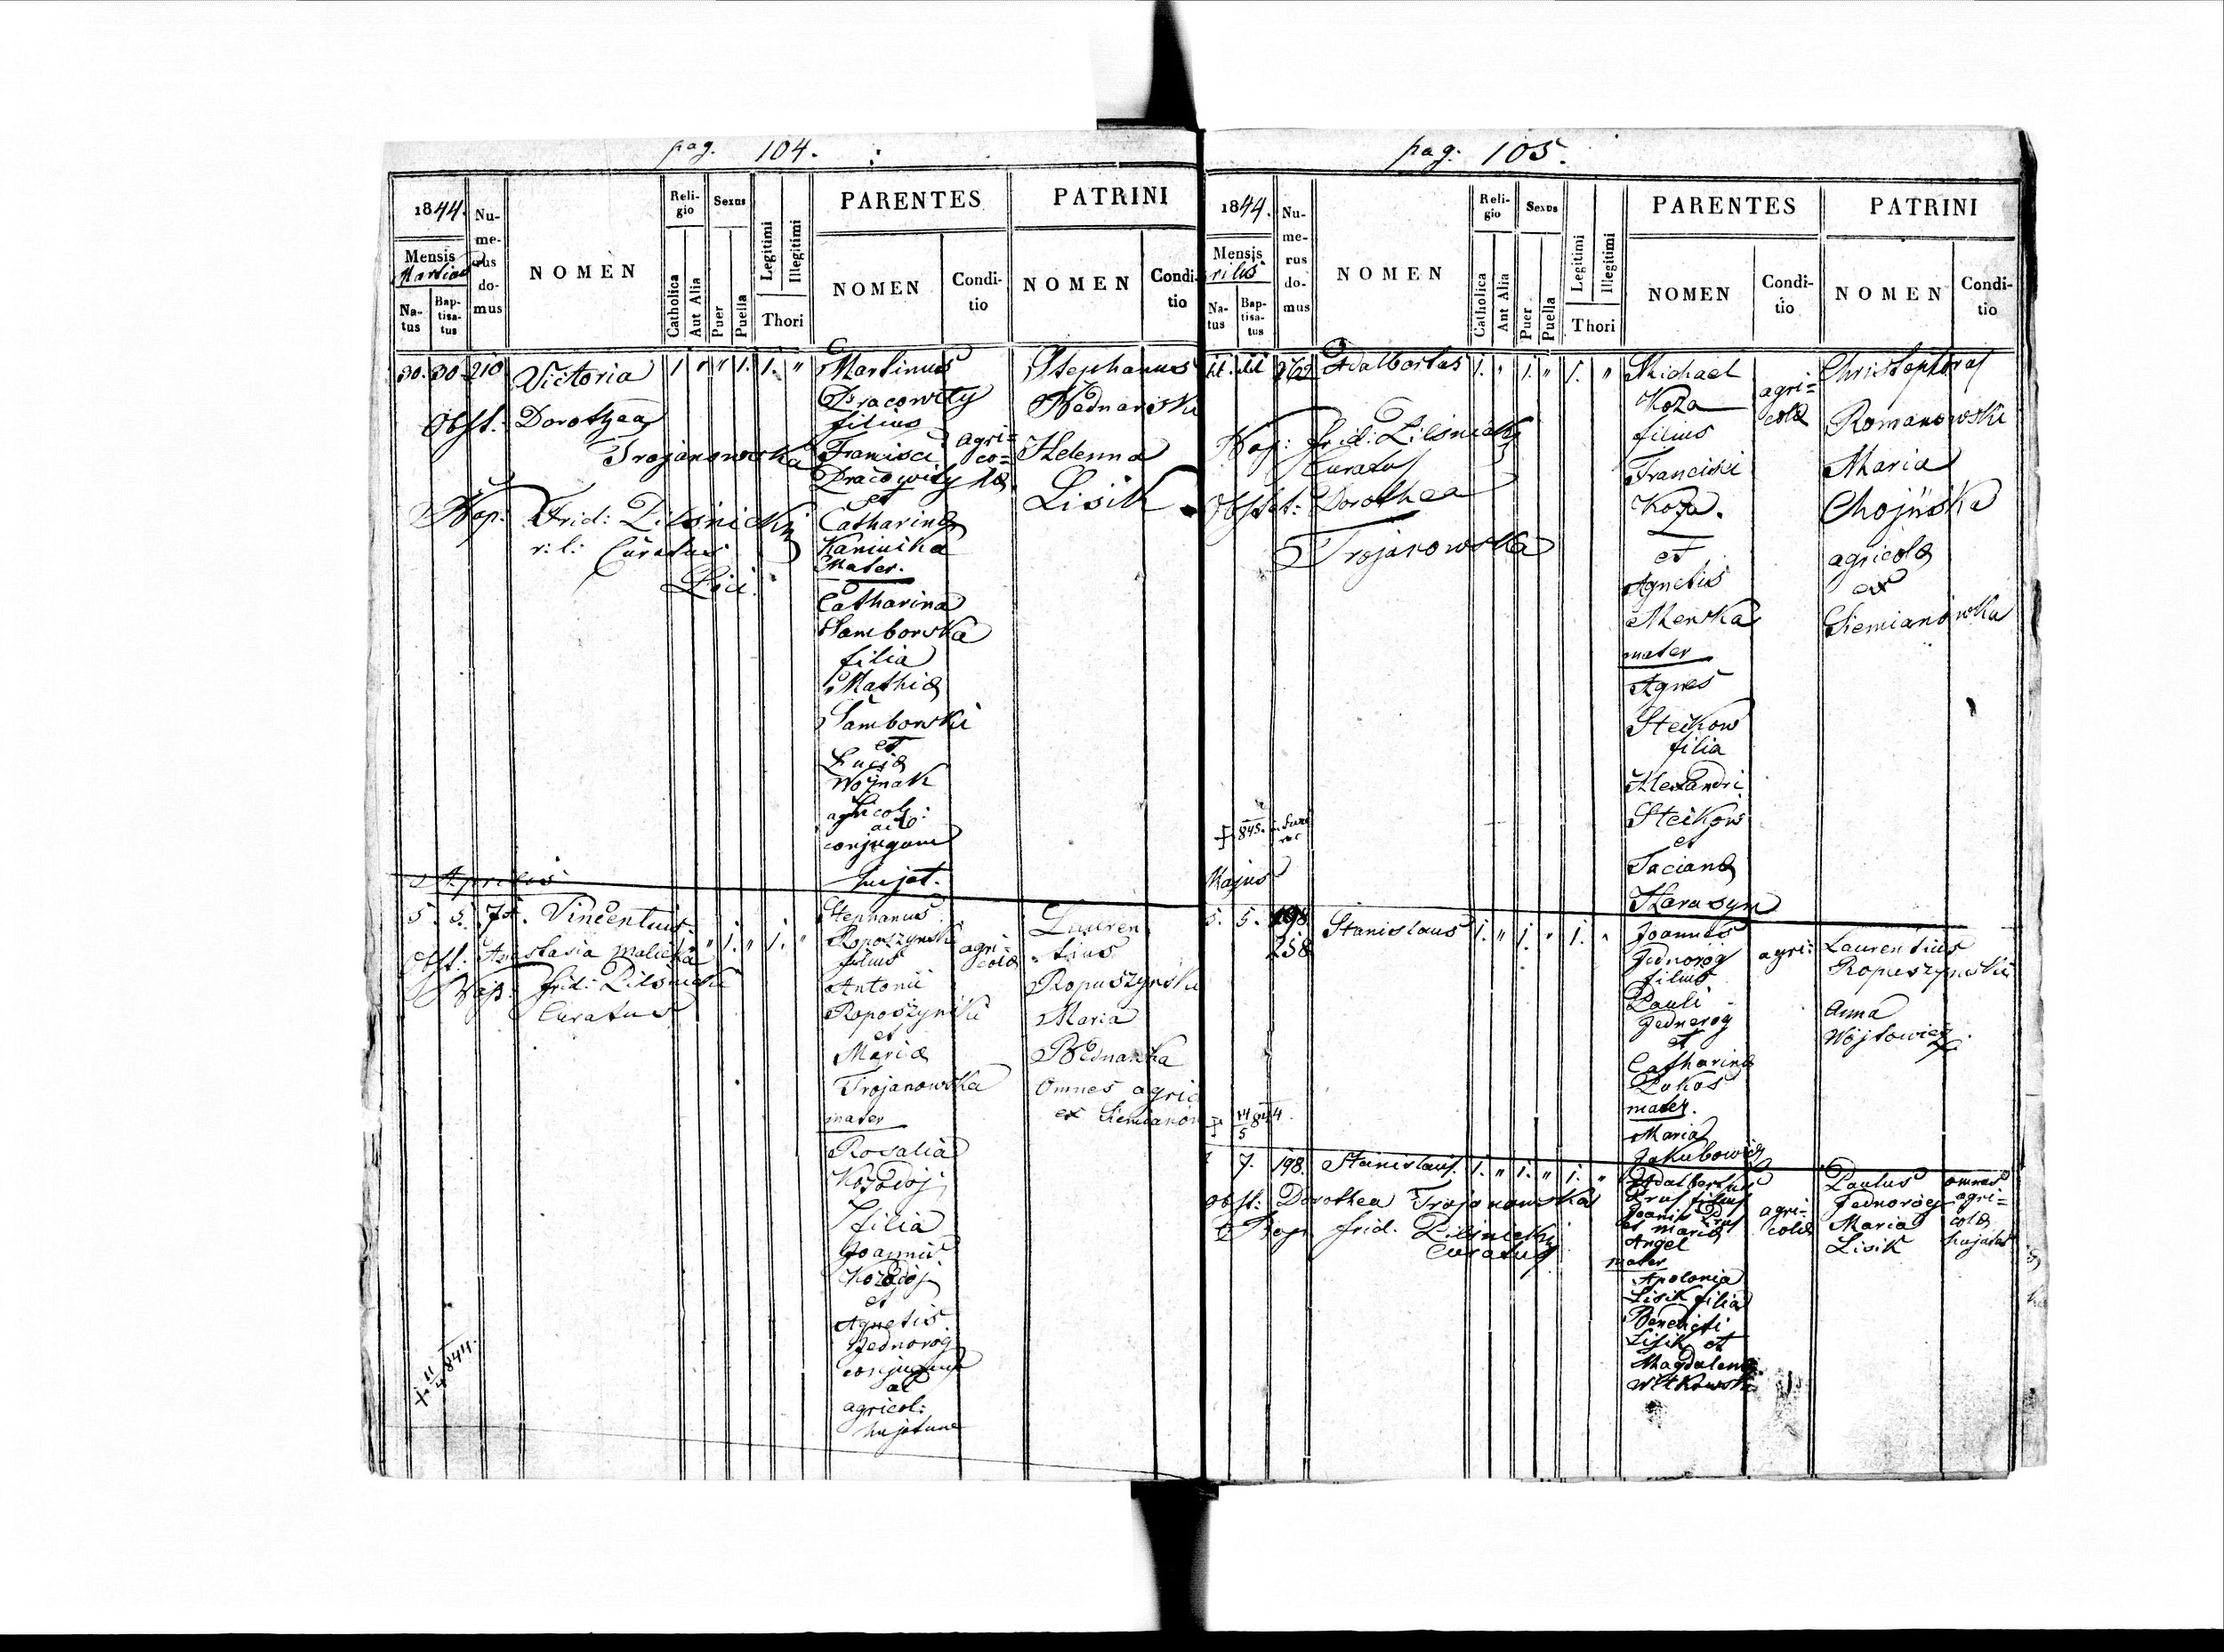 pag. 104.
1844.
Mensis
Martius
Natus
Baptisatus
Numerus domus
NOMEN
Religio
Catholica
Aut Alia
Sexus
Puer
Puella
Legitimi
Illegitimi
Thori
PARENTES
NOMEN
Conditio
PATRINI
NOMEN
Conditio
30. 30 210 Victoria 1 " " 1. 1. "
Obst: Dorothea
Trojanowska
Bap: Frid: Pilsnicki
r: l: Curatus
Loci.
Martinus
Pracowity
filius
Francisci
Pracowity
et
Catharina
Kaminska
Mater.
Catharina
Samborska
filia
Mathia
Samborski
et
Lucia
Woznak
agricol:
ac
conjugum
hujat.
agri=
cola
Stephanus
Bednarski
Helenna
Lisik
Aprilis
5. 5. Vincentius. " 1. " 1. "
Obst: Anastasia Malicka
Bap: frid: Pilsnicki
Curatus
Stephanus
Roposzynski
filius
Antonii
Roposzynski
et
Maria
Trojanowska
mater
Rosalia
Kozodoj
filia
Joannis
Kozodoj
et
Agnetis
Jednorog
conjugum
ac
agricol:
hujatum
agri=
cola
Lauren
tius
Ropuszynski
Maria
Bednarska
Omnes agric
ex Siemianow
+ 11/4 844.
pag. 105.
1844.
Mensis
rilis
Natus
Baptisatus
Numerus domus
NOMEN
Religio
Catholica
Aut Alia
Sexus
Puer
Puella
Legitimi
Illegitimi
Thori
PARENTES
NOMEN
Conditio
PATRINI
NOMEN
Conditio
Adalbertus 1. " 1. " 1. "
Bap: frid: Pilsnicki
Curatus
Obstet: Dorothea
Trojanowska
Michael
Koza
filius
Francisci
Koza.
et
Agnetis
Menska
mater
Agnes
Steikow
filia
Alexandri
Steikow
et
Taciana
Harasyn
agri=
cola
Christophorus
Romanowski
Maria
Chojnska
agricola
ex
Siemianowka
+ 845.
Majus
5. 5. 198
258
Stanislaus 1. " 1. " 1. "
Joannes
Jednorog
filius
Pauli
Jednorog
et
Catharina
Lukas
mater.
Maria
Jakubowicz
agri:
Laurentius
Ropuszynski
Anna
Wojtowicz
+ 14/5 844.
7. 198. Stanislaus. 1. " 1. " 1. "
Obst: Dorothea Trojanowska
Bap: frid. Pilsnicki
Curatus
Adalbertus
Prus filius
Joanis Prus
et Maria
Angel
mater
Apolonia
Lisik filia
Benedicti
Lisik et
Magdalena
Witkowska
agri=
cola
Paulus
Jednorog
Maria
Lisik
omnes
agri=
cola
hujates